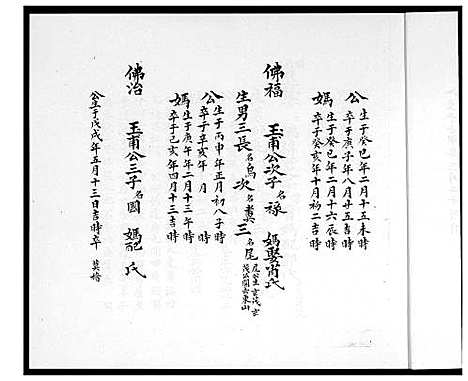 公 生于癸巳年二月十五未時
卒于庚子年八月廿五吉時
媽 生于癸巳年二月十六辰時
卒于癸亥年十月初二吉時
佛福 玉甫公次子名祿 媽娶黃氏
生男三長名烏次名糞三名尾
公 生于丙申年正月初八子時
卒于辛亥年 月 時
媽 生于庚午年二月十三年時
卒于己亥年四月十二吉時
佛治 玉甫公三子名國 媽配 氏
公生于戊戌年五月十三日吉時卒 莫婚